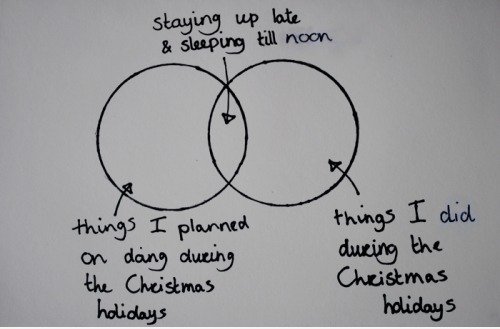 staying up late
& sleeping till noon
things I planned
on doing during
the Christmas
holidays
things I did
during the
Christmas
holidays